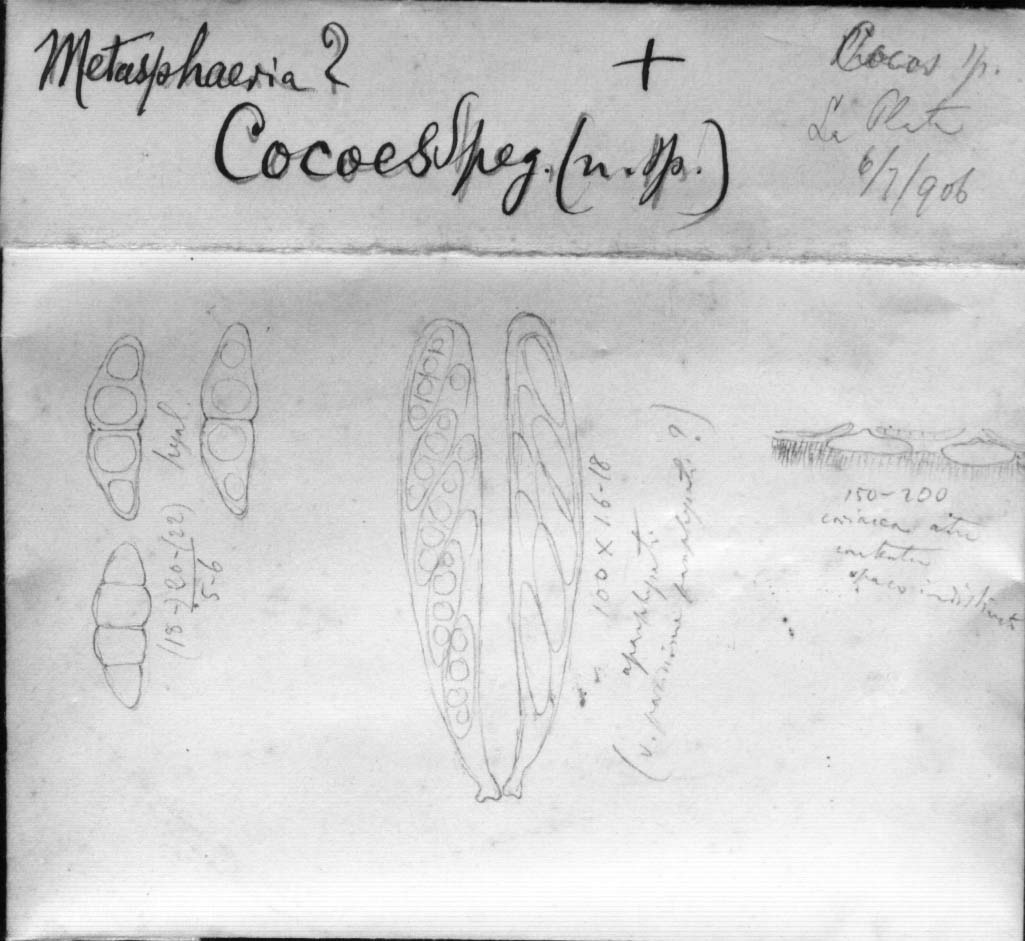 Metasphaeria ?
+
Cocoes Speg. (n. sp.)
Cocos sp.
La Plata
6/7/906
hyal.
(18-) 20-(22)
5-6
100 x 16-18
aparaphysati
(v. parcissime paraphysati?)
150-200
coriacea atra
contextu
opaco indistincto